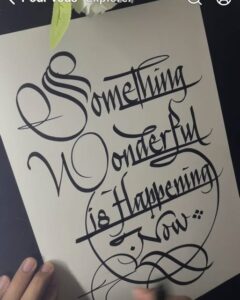 Pour vous
Explorer
Something
Wonderful
is Happening
Now